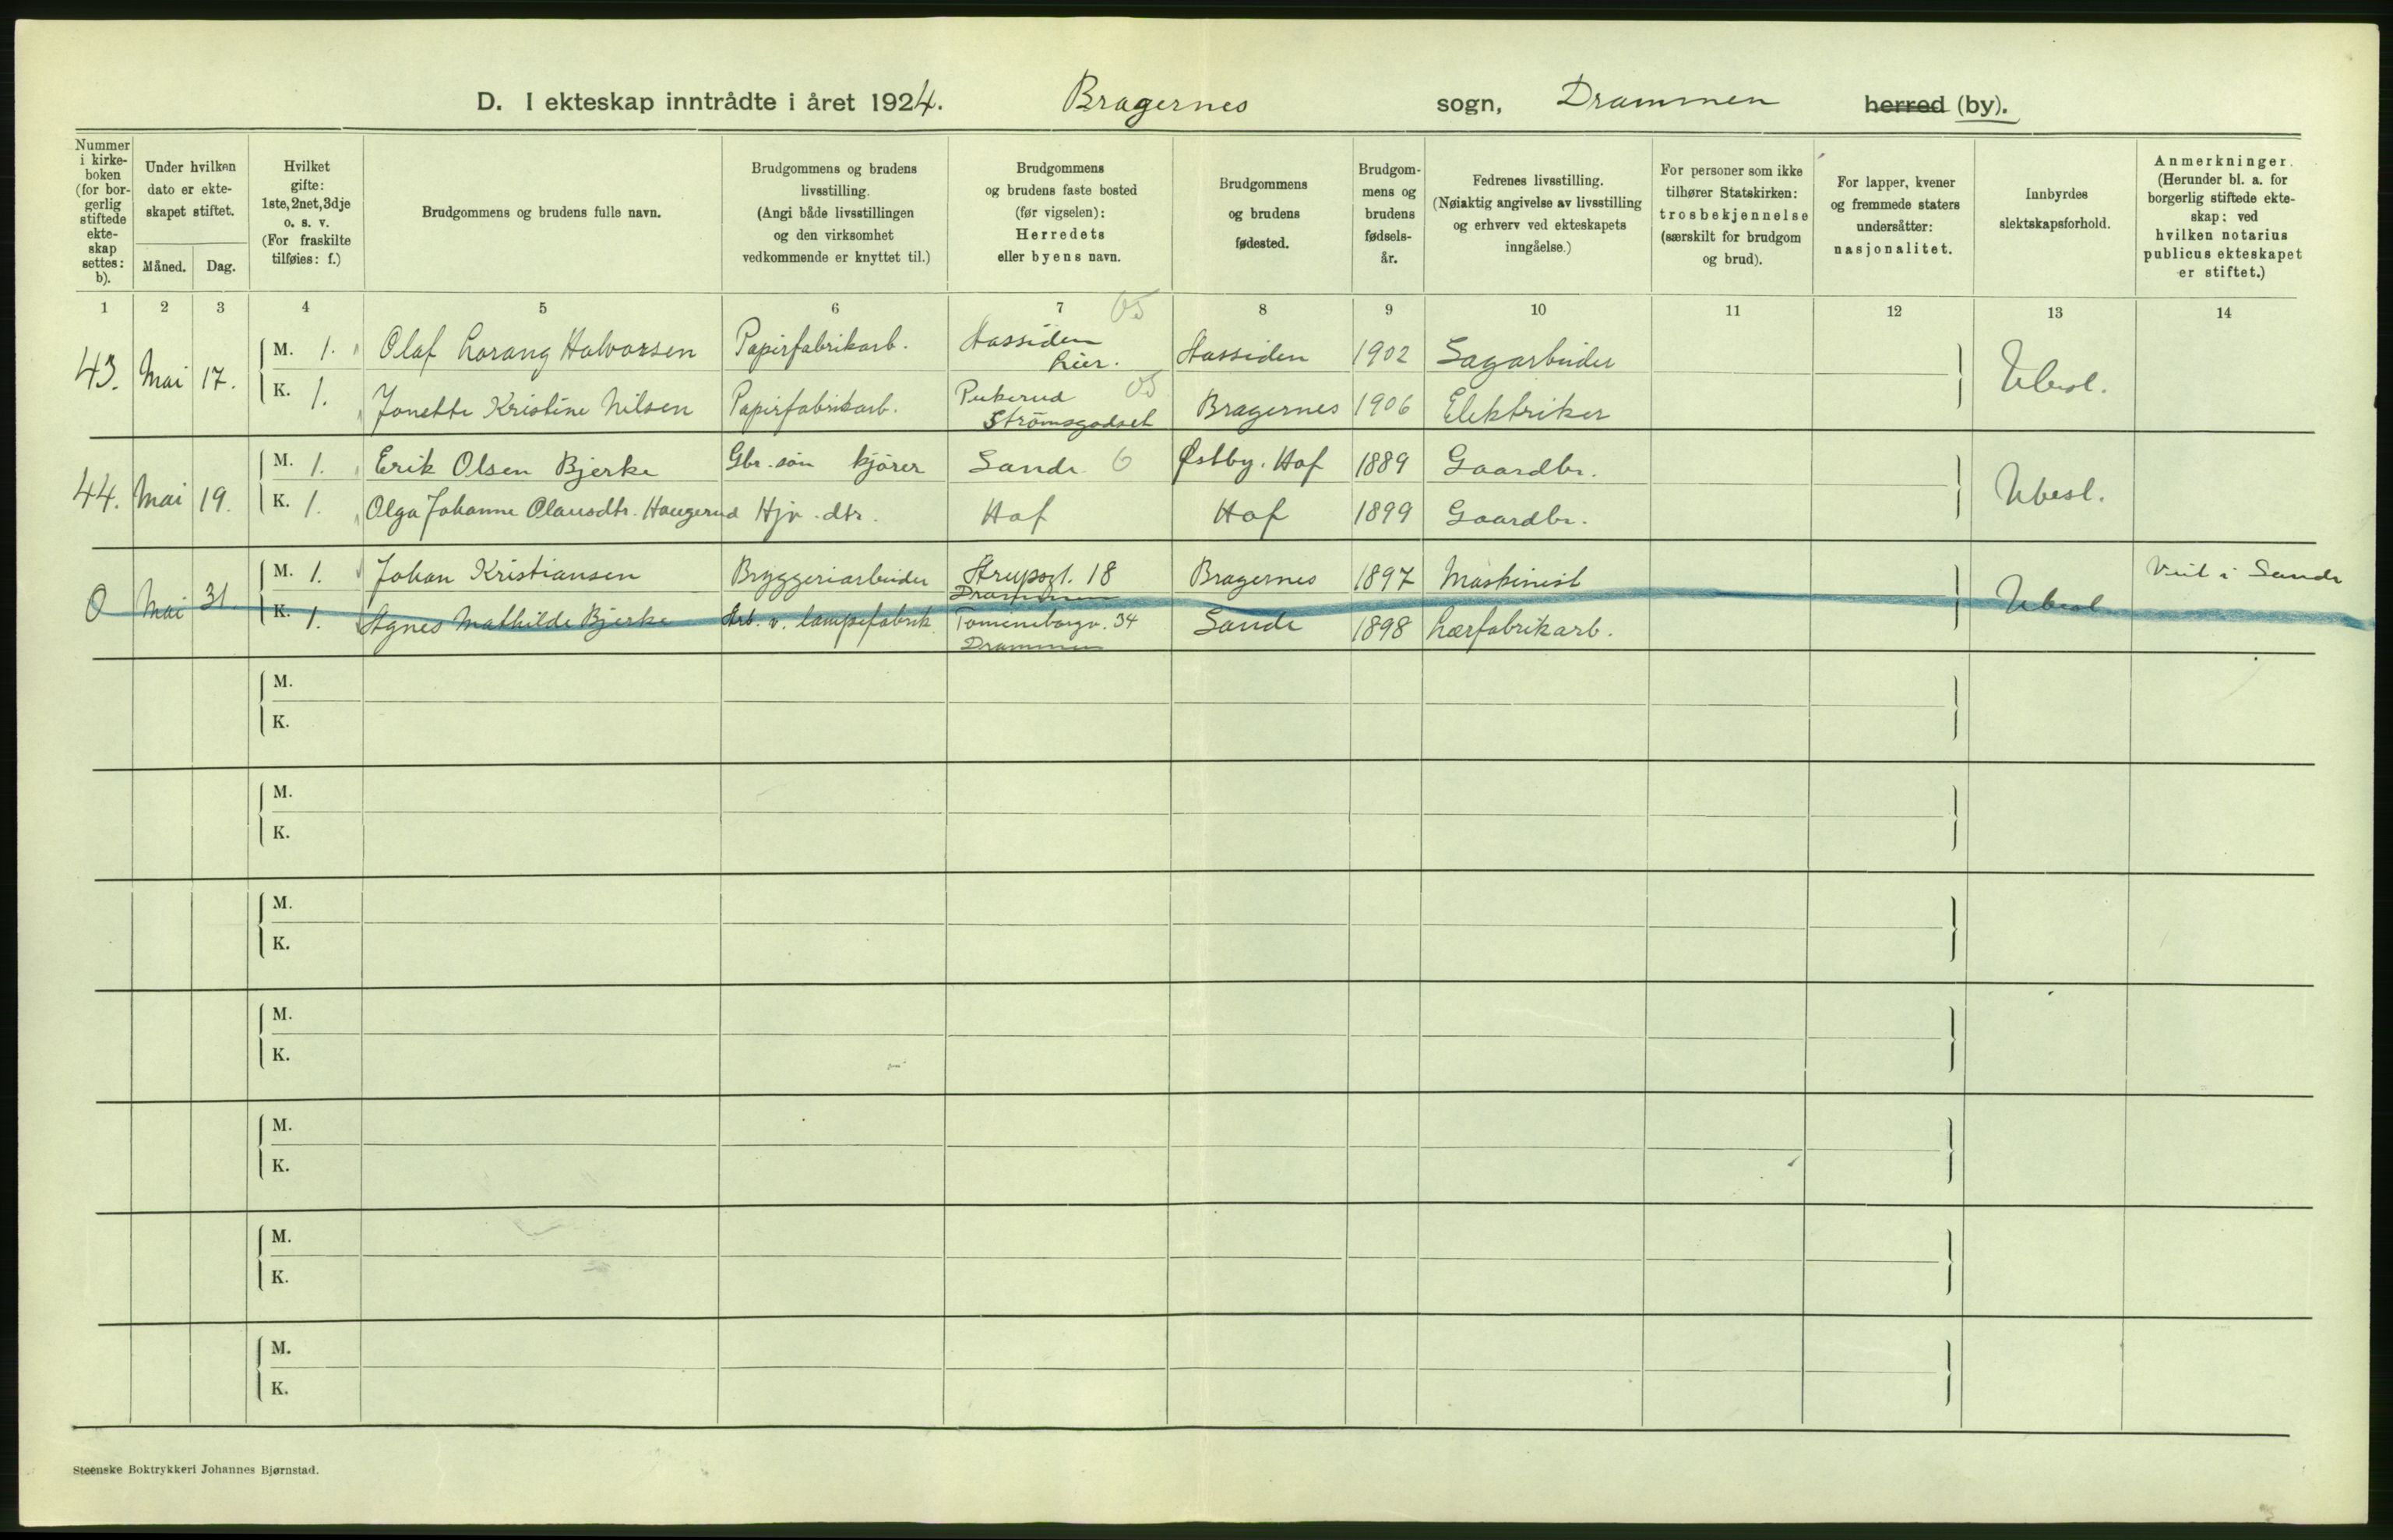 D. I ekteskap inntrådte i året 1924. Bragernes sogn, Drammen herred (by).
Nummer i kirkeboken (for borgerlig stiftede ekteskap settes: b).
Under hvilken dato er ekteskapet stiftet.
Måned. Dag.
Hvilket gifte: 1ste, 2net, 3dje o. s. v. (For fraskilte tilføies: f.)
Brudgommens og brudens fulle navn.
Brudgommens og brudens livsstilling. (Angi både livsstillingen og den virksomhet vedkommende er knyttet til.)
Brudgommens og brudens faste bosted (før vigselen): Herredets eller byens navn.
Brudgommens og brudens fødested.
Brudgommens og brudens fødselsår.
Fedrenes livsstilling. (Nøiaktig angivelse av livsstilling og erhverv ved ekteskapets inngåelse.)
For personer som ikke tilhører Statskirken: trosbekjennelse (særskilt for brudgom og brud).
For lapper, kvener og fremmede staters undersåtter: nasjonalitet.
Innbyrdes slektskapsforhold.
Anmerkninger. (Herunder bl. a. for borgerlig stiftede ekteskap; ved hvilken notarius publicus ekteskapet er stiftet.)
1 2 3 4 5 6 7 8 9 10 11 12 13 14
43. Mai 17. M. 1. Olaf Lorang Halvorsen Papirfabrikarb. Hassiden Lier. 05 Hassiden 1902 Sagarbeider Ubesl.
K. 1. Jonette Kristine Nilsen Papirfabrikarb. Pukerud Strömsgodset 05 Bragernes 1906 Elektriker
44. Mai 19. M. 1. Erik Olsen Bjerke Gbr. sön kjörer Sande 6 Østby. Hof 1889 Gaardbr. Ubesl.
K. 1. Olga Johanne Olausdtr. Haugerud Hjv. dtr. Hof Hof 1899 Gaardbr.
0 Mai 31. M. 1. Johan Kristiansen Bryggeriarbeider Strupsgt. 18 Drammen Bragernes 1897 Maskinist Ubesl Viet i Sande
K. 1. Agnes Mathilde Bjerke Arb. v. lampefabrik Tomineborgv. 34 Drammen Sande 1898 Lærfabrikarb.
M.
K.
M.
K.
M.
K.
M.
K.
M.
K.
M.
K.
M.
K.
Steenske Boktrykkeri Johannes Bjørnstad.